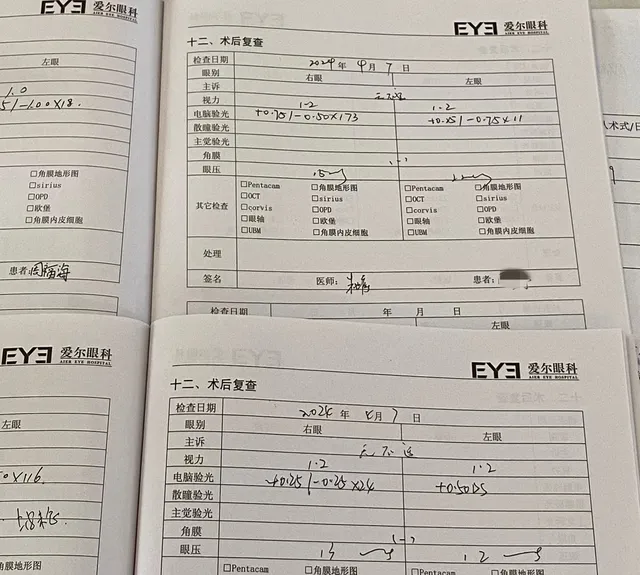 EYE 爱尔眼科
AIER EYE HOSPITAL
左眼
1.0
/-1.00×18
□角膜地形图
□sirius
□OPD
□欧堡
□角膜内皮细胞
患者:
EYE 爱尔眼科
AIER EYE HOSPITAL
十二、术后复查
检查日期 2024 年 4 月 7 日
眼别 右眼 左眼
主诉 无不适
视力 1.2 1.2
电脑验光 +0.75/-0.50×173 /-0.75×11
散瞳验光
主觉验光
角膜 (-)
眼压
其它检查
□Pentacam □角膜地形图 □Pentacam □角膜地形图
□OCT □sirius □OCT □sirius
□corvis □OPD □corvis □OPD
□眼轴 □欧堡 □眼轴 □欧堡
□UBM □角膜内皮细胞 □UBM □角膜内皮细胞
处理
签名 医师: 患者:
检查日期 年 月 日
左眼
术式/日
EYE 爱尔眼科
AIER EYE HOSPITAL
左眼
×116
角膜地形图
EYE 爱尔眼科
AIER EYE HOSPITAL
十二、术后复查
检查日期 2024 年 4 月 7 日
眼别 右眼 左眼
主诉 无不适
视力 1.2 1.2
电脑验光 +0.25/-0.25×24 +0.50DS
散瞳验光
主觉验光
角膜 (-)
眼压 13 12
□Pentacam □角膜地形图 □Pentacam □角膜地形图